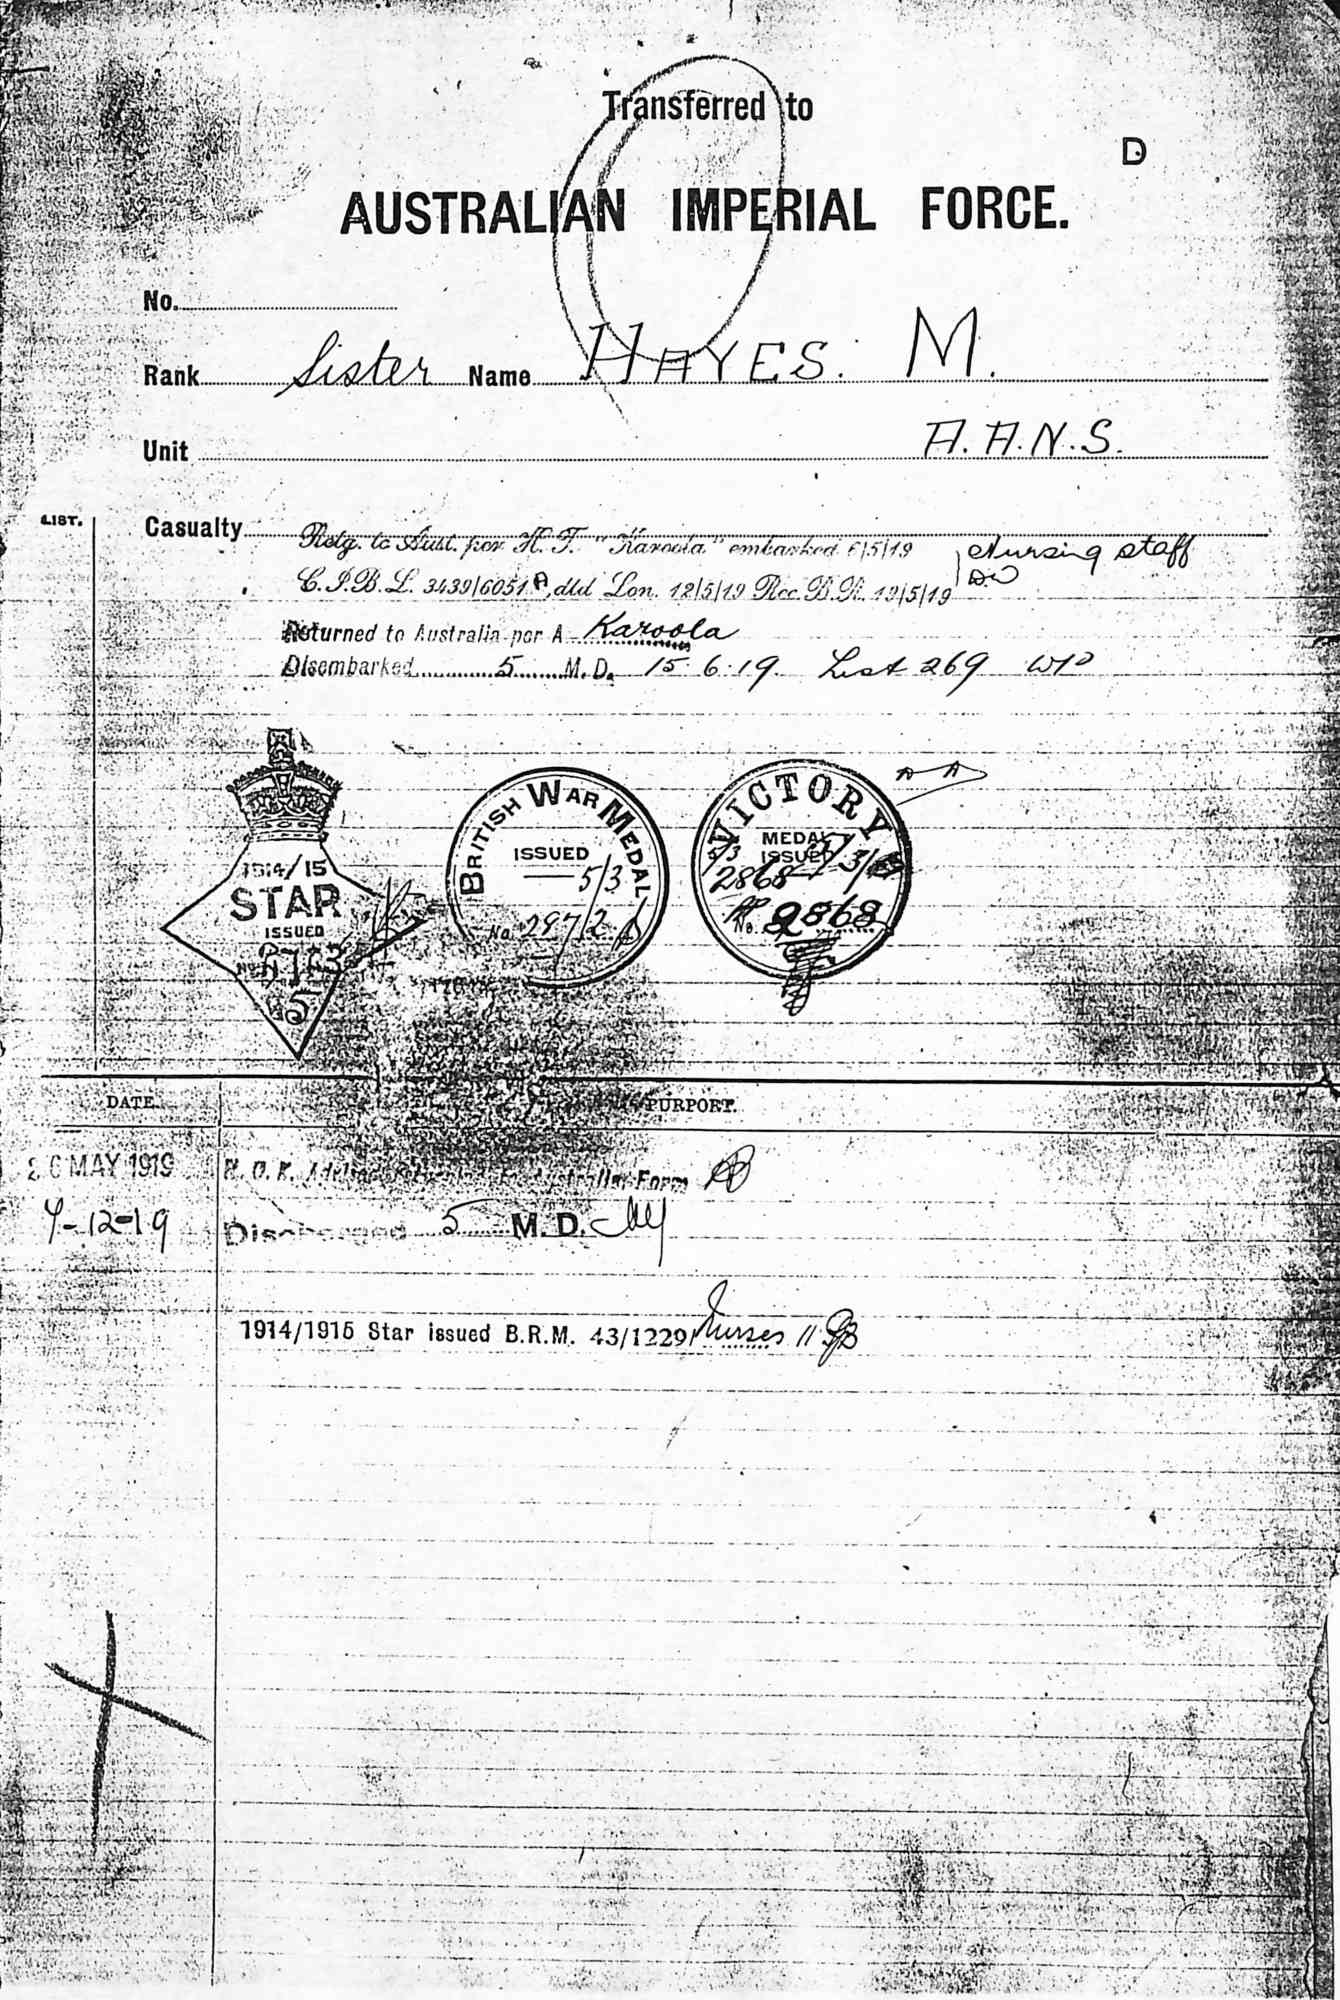 Transferred to
D
AUSTRALIAN IMPERIAL FORCE.
No.
Rank Sister Name HAYES. M.
Unit A.A.N.S.
LIST.
Casualty
Retg. to Aust. per H. T. "Karoola" embarked /5/19 Nursing staff
C.I.B.L. 3439/6051 A, dtd Lon. 12/5/19 Rec. B.R. 19/5/19
Returned to Australia per A Karoola
Disembarked 5 M. D. 15.6.19. List 269
1914/15
STAR
ISSUED
BRITISH WAR MEDAL
ISSUED
5/3
No. 297/2
VICTORY
MEDAL
ISSUED
5/3
2868
No. 2868
DATE. PURPORT.
MAY 1919 N. O. K. Form
4-12-19 Discharged 5 M. D.
1914/1915 Star issued B.R.M. 43/1229 Nurses 11